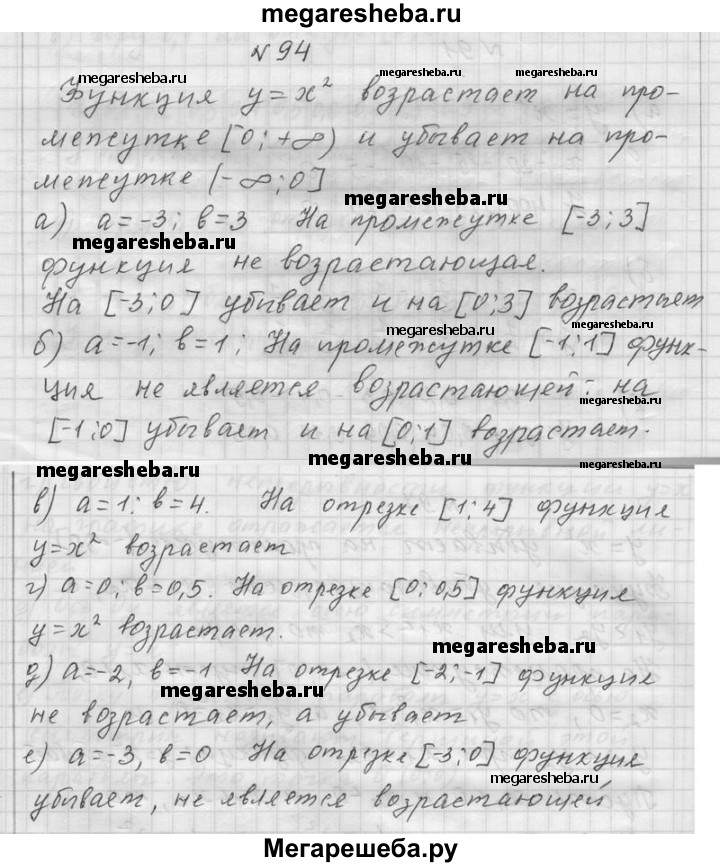 megaresheba.ru
№ 94
megaresheba.ru megaresheba.ru megaresheba.ru
Функция y=x² возрастает на про-
межутке [0; +∞) и убывает на про-
межутке (-∞; 0]
megaresheba.ru
а) a=-3; в=3 На промежутке [-3; 3]
megaresheba.ru
функция не возрастающая.
На [-3; 0] убывает и на [0; 3] возрастает
megaresheba.ru megaresheba.ru
б) a=-1; в=1; На промежутке [-1; 1] функ-
ция не является возрастающей: на
megaresheba.ru
[-1; 0] убывает и на [0; 1] возрастает.
megaresheba.ru
megaresheba.ru megaresheba.ru
в) a=1; в=4. На отрезке [1; 4] функция
y=x² возрастает
г) a=0; в=0,5. На отрезке [0; 0,5] функция
y=x² возрастает.
megaresheba.ru
д) a=-2, в=-1 На отрезке [-2; -1] функция
megaresheba.ru
не возрастает, а убывает
е) a=-3, в=0 На отрезке [-3; 0] функция
megaresheba.ru
убывает, не является возрастающей
Мегарешеба.ру